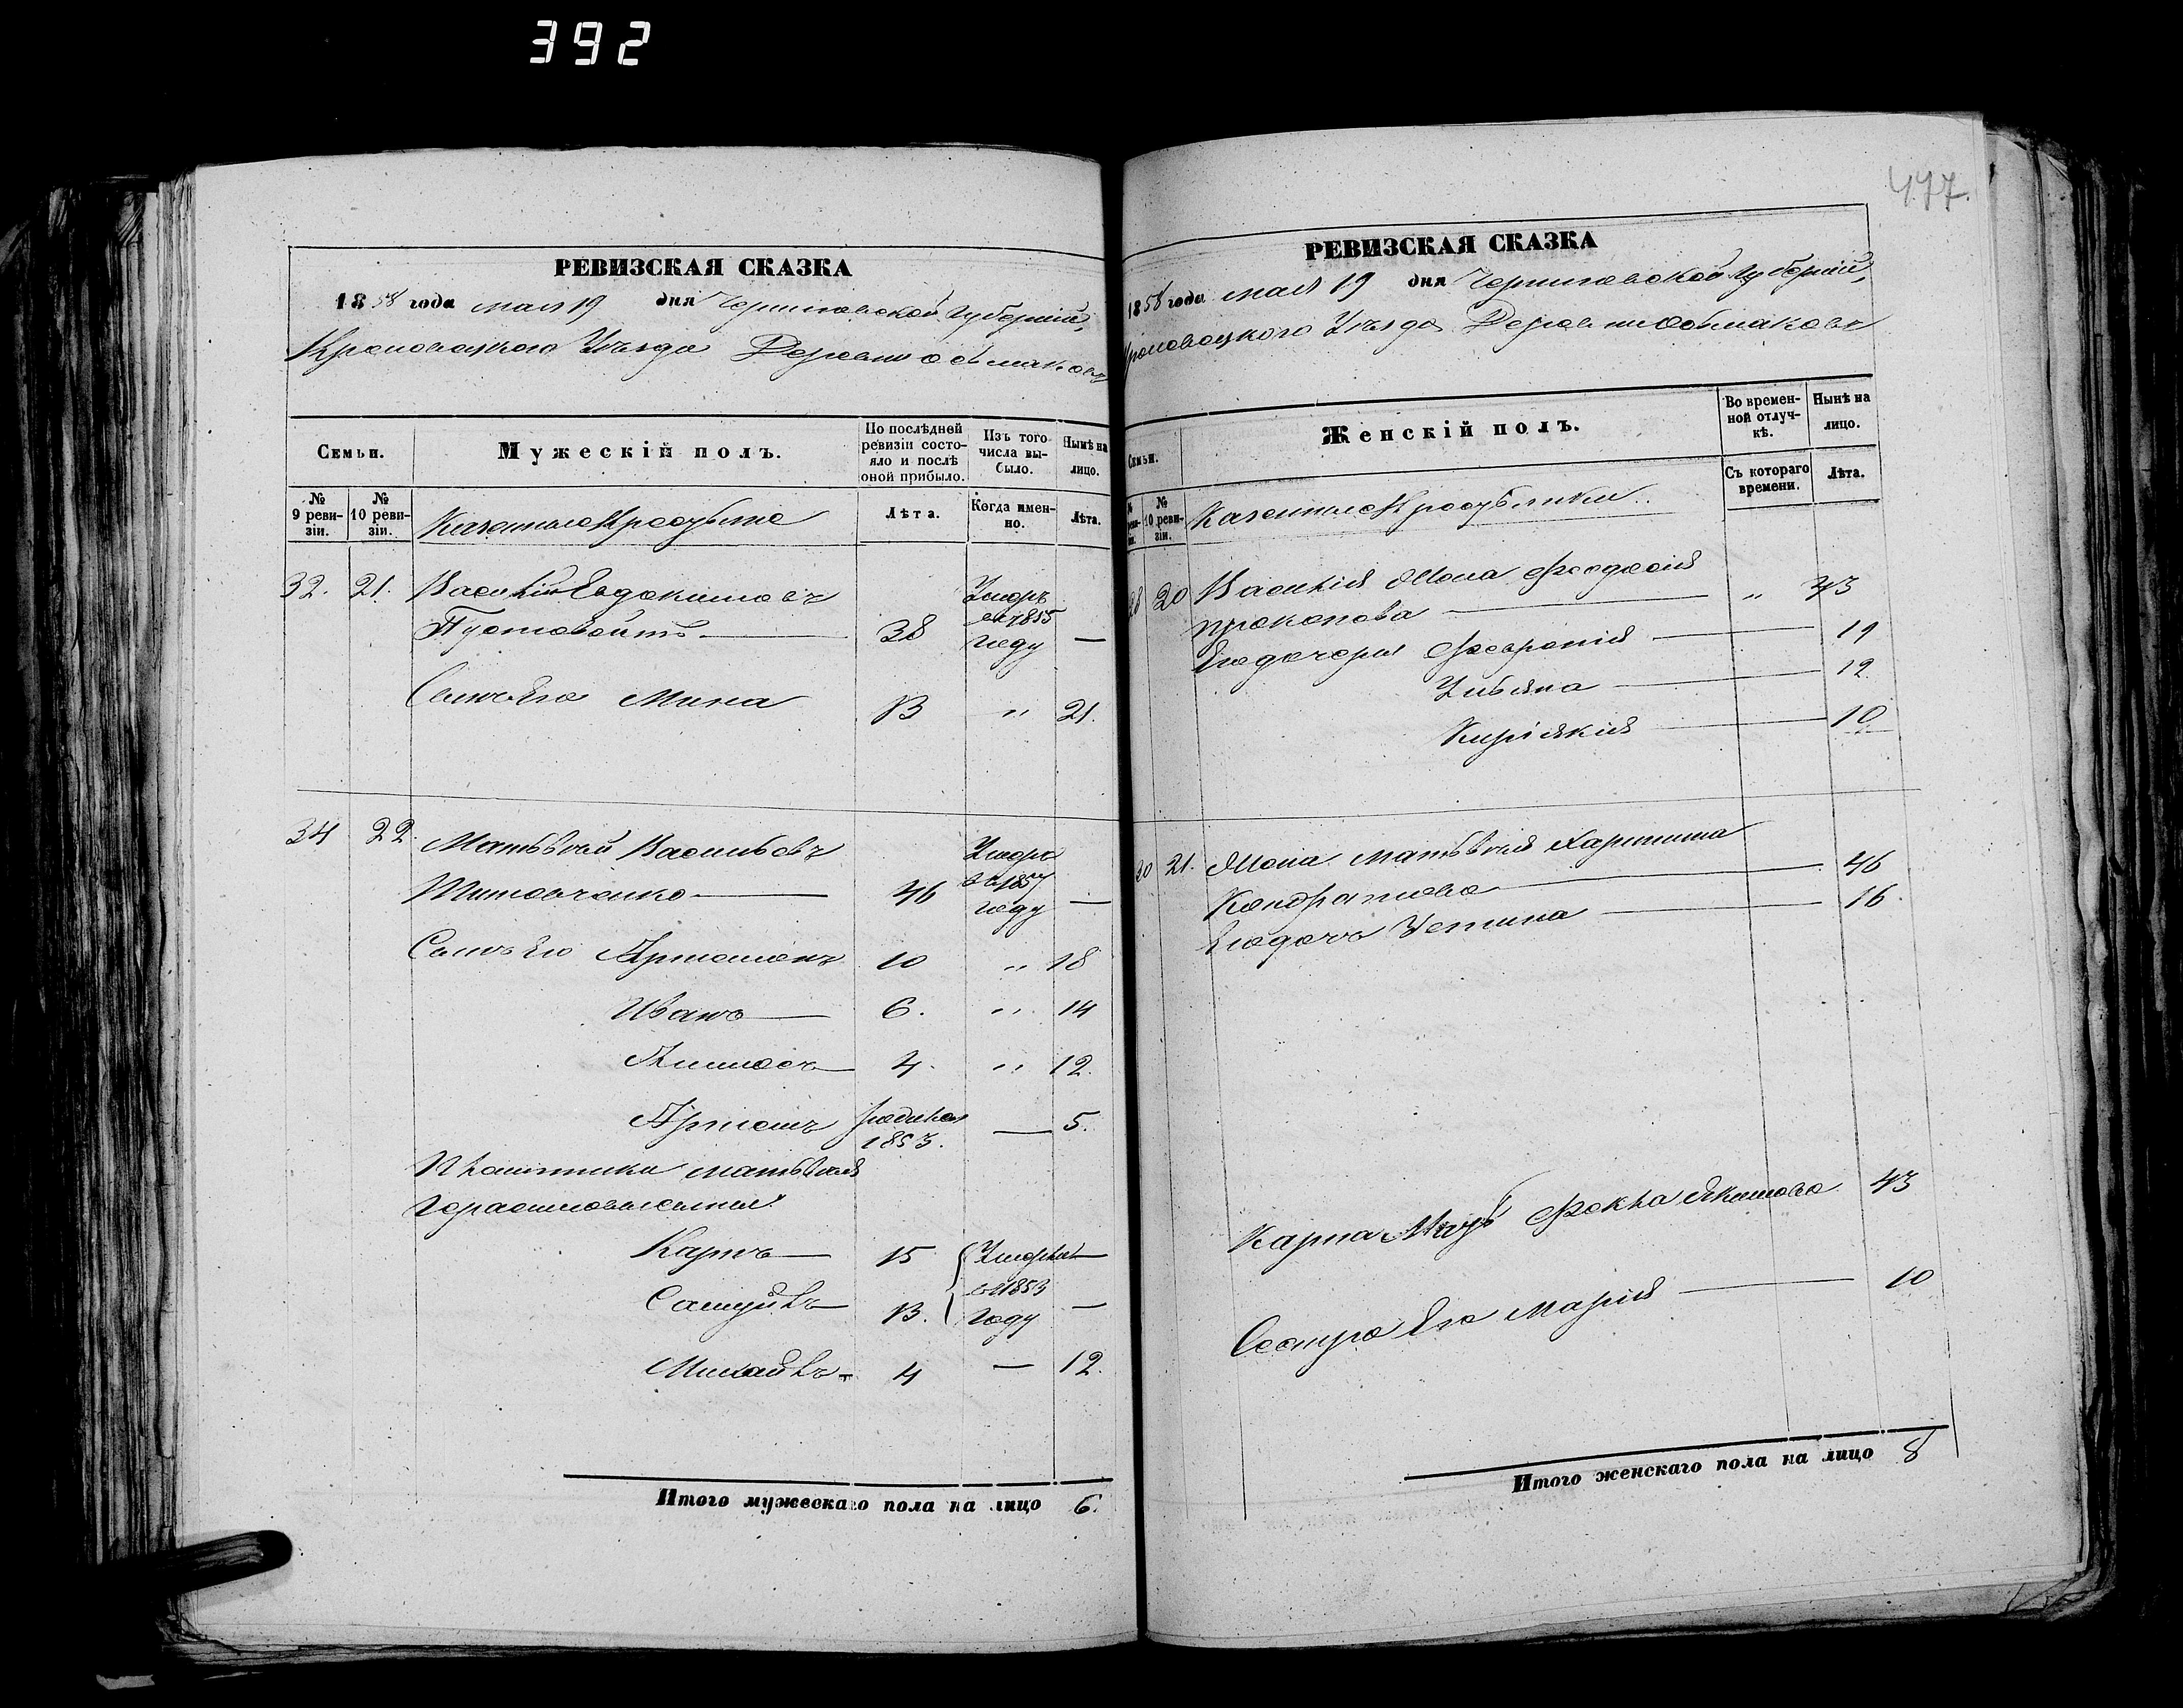 392
РЕВИЗСКАЯ СКАЗКА
1858 года мая 19 дня Черниговской Губерніи,
Кролевецкого Уѣзда Деревни Обтмаковъ
Семьи.
Мужескій полъ.
По послѣдней ревизіи состояло и послѣ оной прибыло.
Изъ того числа выбыло.
Нынѣ на лицо.
№ 9 ревизіи.
№ 10 ревизіи.
Казенные Кресьяне
Лѣта.
Когда именно.
Лѣта.
32. 21. Василій Евдокимовъ
Пустовойтъ 38 Умеръ въ 1855 году —
Сынъ Его Мина 13 " 21.
34 22. Матвѣй Васильевъ
Титовченко 46 Умеръ въ 1857 году —
Сынъ Его Артемонъ 10 " 18
Иванъ 6. " 14
4. " 12.
Артемъ родился 1853. — 5.
Племянники Матвѣя
Герасимовы сыны:
Карпъ 15 Умерли
Самуйлъ 13. въ 1853 году —
Михайлъ 4 — 12.
Итого мужескаго пола на лицо 6.
477.
РЕВИЗСКАЯ СКАЗКА
1858 года мая 19 дня Черниговской Губерніи,
Кролевецкого Уѣзда Деревни Обтмаковъ
Семьи.
Женскій полъ.
Во временной отлучкѣ.
Нынѣ на лицо.
№ 10 ревизіи.
Казенные Кресьянки
Съ котораго времени.
Лѣта.
28 20 Василія Жена Феодосія
Прокопова " 43
Его дочери Февронія 19
Ульяна 12
Киріякія 10
30 21. Жена Матвѣя Харитина
Кондратова 46
Его дочь Устина 16.
Карпа Мать Фекла Якимова 43
Сестра Его Марія 10
Итого женскаго пола на лицо 8